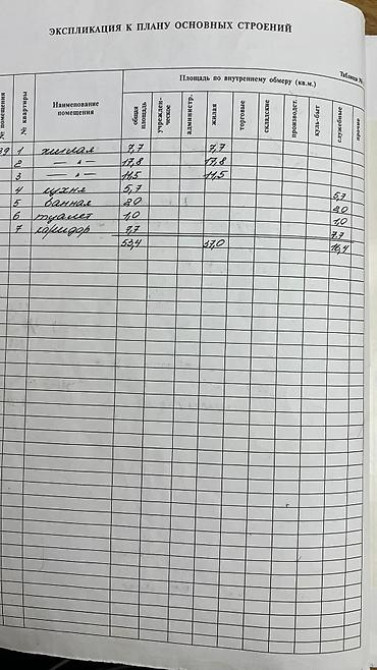 ЭКСПЛИКАЦИЯ К ПЛАНУ ОСНОВНЫХ СТРОЕНИЙ
Таблица №
Площадь по внутреннему обмеру (кв.м.)
№ помещения
№ квартиры
Наименование
помещения
общая
площадь
учрежден-
ческое
администр.
жилая
торговые
складские
производст.
куль-быт
служебные
прочие
39 1 жилая 7,7 7,7
2 — " — 17,8 17,8
3 — " — 11,5 11,5
4 кухня 5,7 5,7
5 ванная 2,0 2,0
6 туалет 1,0 1,0
7 коридор 7,7 7,7
53,4 37,0 16,4